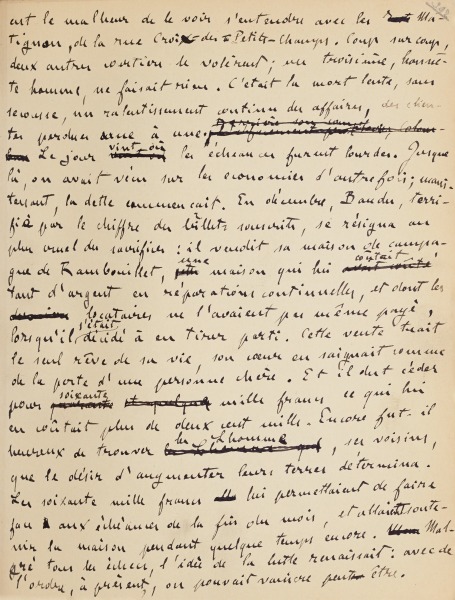 eut le malheur de le voir s'entendre avec les Ma-
tignon, de la rue Croix-des-Petits-Champs. Coup sur coup,
deux autres courtiers le volèrent; un troisième, honnê-
te homme, ne faisait rien. C'était la mort lente, sans
secousse, un ralentissement continu des affaires, des clien-
tes perdues une à une.
Le jour vint où les échéances furent lourdes. Jusque
là, on avait vécu sur les économies d'autrefois; main-
tenant, la dette commençait. En décembre, Baudu, terri-
fié par le chiffre des billets souscrits, se résigna au
plus cruel des sacrifices: il vendit sa maison de campa-
gne de Rambouillet, une maison qui lui coûtait
tant d'argent en réparations continuelles, et dont les
locataires ne l'avaient pas même payé,
lorsqu'il s'était décidé à en tirer parti. Cette vente tuait
le seul rêve de sa vie, son cœur en saignait comme
de la perte d'une personne chère. Et il dut céder
pour soixante mille francs ce qui lui
en coûtait plus de deux cent mille. Encore fut-il
heureux de trouver les Lhomme, ses voisins,
que le désir d'augmenter leurs terres détermina.
Les soixante mille francs lui permettaient de faire
face aux échéances de la fin du mois, et allaient soute-
nir la maison pendant quelque temps encore. Mal-
gré tous les échecs, l'idée de la lutte renaissait: avec de
l'ordre, à présent, on pouvait vaincre peut-être.